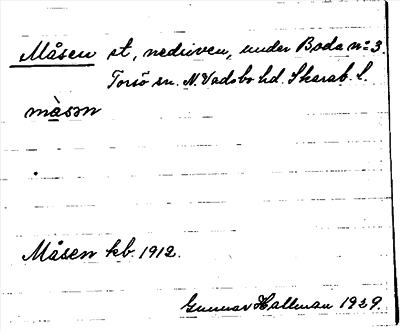 Måsen st, nedriven, under Boda nº 3.
Torsö sn. N. Vadsbo hd. Skarab. l.
mòsən
Måsen kb. 1912.
Gunnar Hallman 1929.